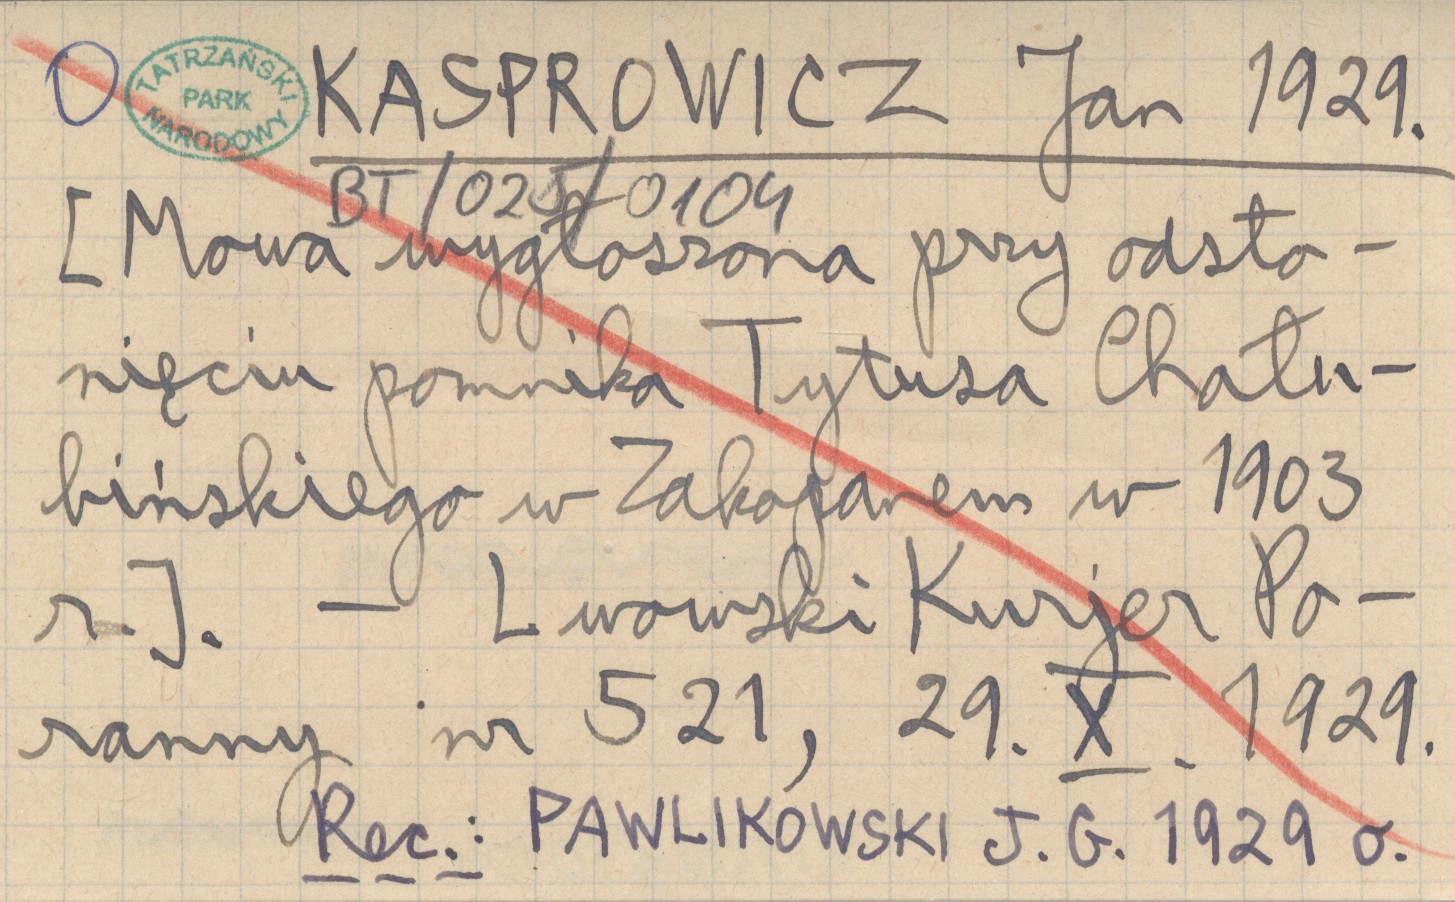 O TATRZAŃSKI PARK NARODOWY KASPROWICZ Jan 1929.
BT/025/0104
[Mowa wygłoszona przy odsło-
nięciu pomnika Tytusa Chału-
bińskiego w Zakopanem w 1903
r.]. — Lwowski Kurjer Po-
ranny nr 521, 29. X. 1929.
Rec.: PAWLIKOWSKI J. G. 1929 o.